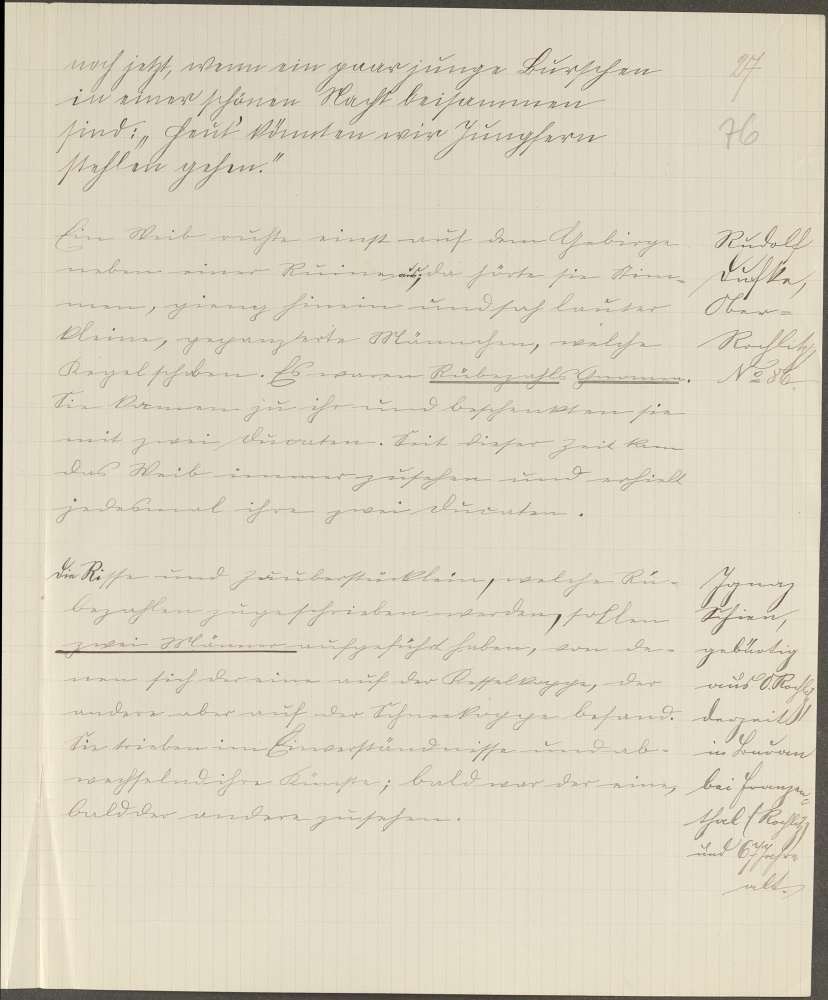 27
76
noch jetzt, wenn ein paar junge Burschen
in einer schönen Nacht beisammen
sind: „Heut' könnten wir Jungfern
stehlen gehen."
Ein Weib ruhte einst auf dem Gebirge
neben einer Ruine aus; da hörte sie Stim-
men, gieng hinein und sah lauter
kleine, gepanzerte Männchen, welche
Kegel schoben. Es waren Rübezahls Gnomen.
Sie kamen zu ihr und beschenkten sie
mit zwei Ducaten. Seit dieser Zeit kam
das Weib immer zusehen und erhielt
jedesmal ihre zwei Ducaten.
Rudolf
Duschke,
Ober-
Rochlitz
No 86.
Die Risse und Zauberstücklein, welche Rü-
bezahlen zugeschrieben werden, sollen
zwei Männer aufgeführt haben, von de-
nen sich der eine auf der Kesselkoppe, der
andere aber auf der Schneekoppe befand.
Sie trieben im Einverständnisse und ab-
wechselnd ihre Künste; bald war der eine,
bald der andere zusehen.
Ignaz
Schien,
gebürtig
aus O. Rochlitz
derzeit
in Buran
bei Franzen-
thal (Rochlitz)
und 67 Jahre
alt.